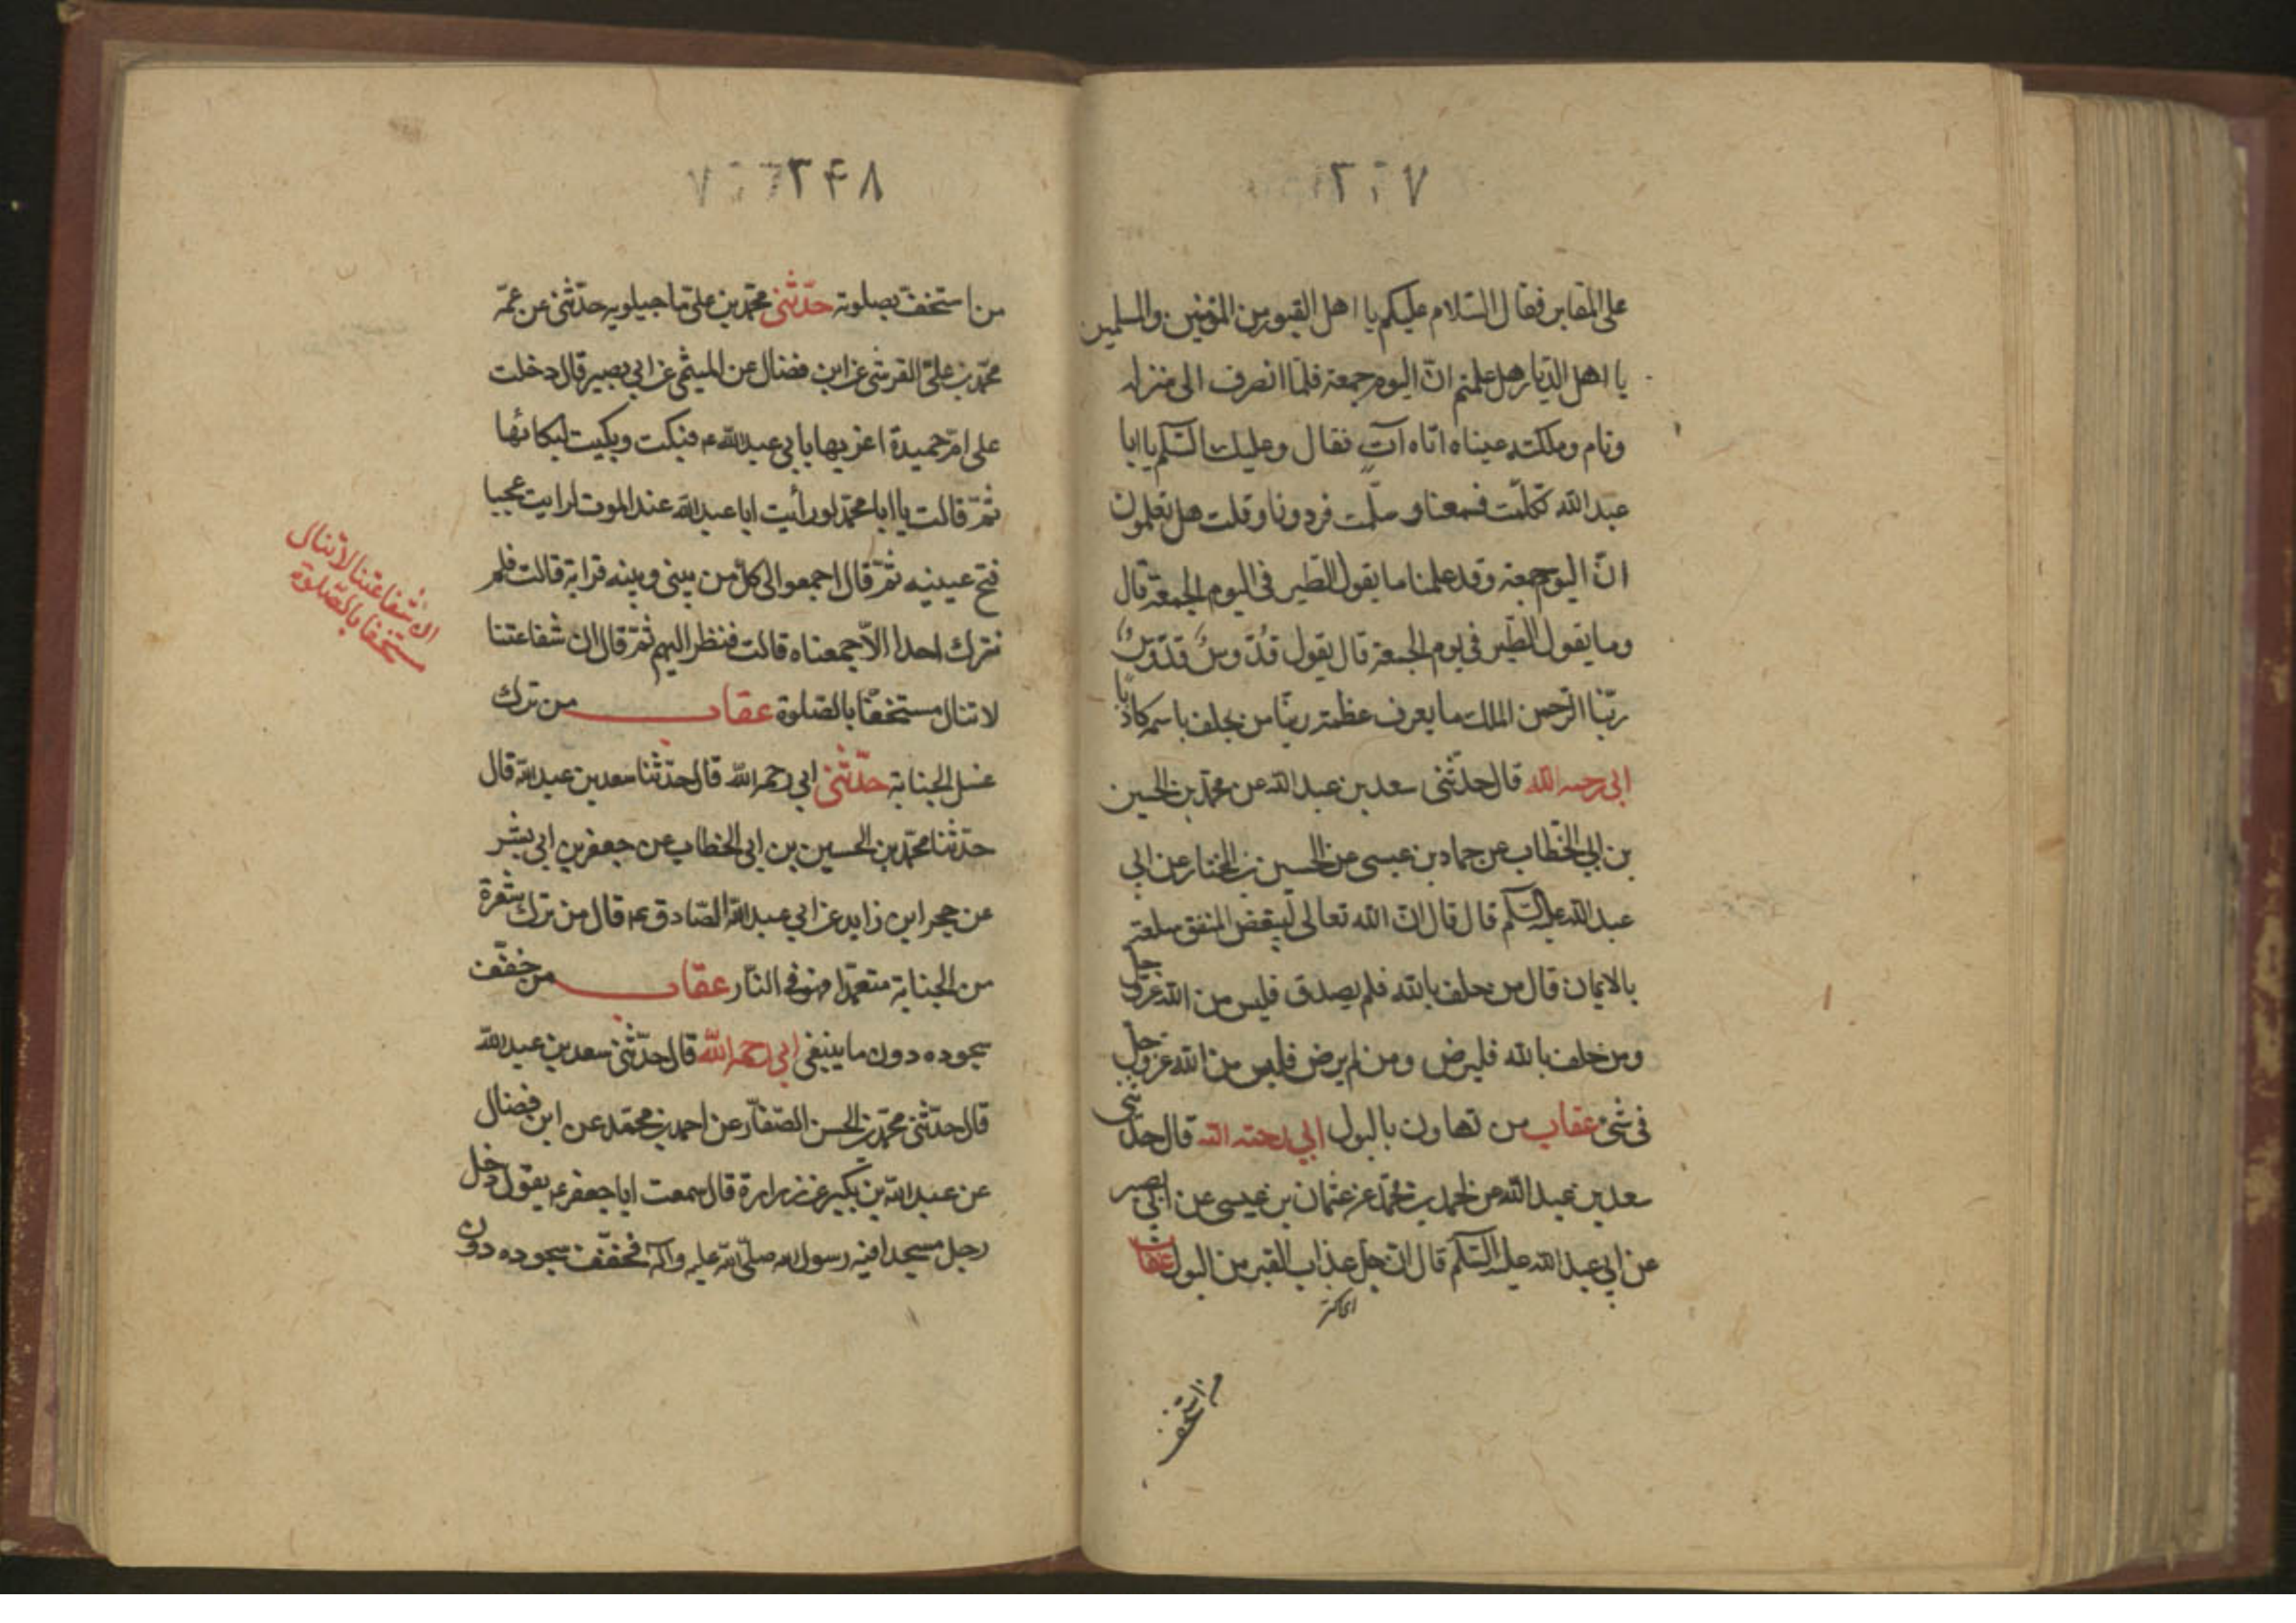 ٢٠٧
على المقابر فقال السّلام عليكم يا اهل القبور من المؤمنين والمسلمين
يا اهل الدّيار هل علمتم انّ اليوم جمعة فلمّا انصرف الى منزله
ونام وملكته عيناه اتاه آتٍ فقال وعليك السّلم يا ابا
عبد الله تكلّمت فسمعنا و سلّمت فرددنا و قلت هل تعلمون
انّ اليوم جمعة وقد علمنا ما يقول الطّير فى اليوم الجمعة قال
وما يقول الطّير فى يوم الجمعة قال يقول قُدّوسٌ قدّوسٌ
ربّنا الرّحمن الملك ما يعرف عظمة ربّنا من يحلف باسمه كاذبًا
ابى رحمه الله قال حدّثنى سعد بن عبد الله عن محمّد بن الحسين
بن ابى الخطّاب عن حماد بن عيسى عن الحسين بن المختار عن ابى
عبد الله عليه السّلم قال قال انّ الله تعالى ليبغض المنفق سلعته
بالايمان قال من حلف بالله فلم يصدق فليس من الله عزّ وجل
ومن حلف بالله فليرض ومن لم يرض فليس من الله عزّ وجل
فى شئ عقاب من تهاون بالبول ابى رحمه الله قال حدّثنى
سعد بن عبد الله عن احمد بن محمّد عن عثمان بن عيسى عن ابى بصير
عن ابى عبد الله عليه السّلم قال انّ جلّ عذاب القبر من البول عقاب
اى اكثر
من استخف
٢۴٨
من استخفّ بصلوته حدّثنى محمّد بن علىّ ماجيلويه حدّثنى عن عمّه
محمّد بن علىّ القرشى عن ابن فضال عن الميثمى عن ابى بصير قال دخلت
على امّ حميدة اعزيها بابى عبد الله ع فبكت وبكيت لبكائها
ثمّ قالت يا ابا محمّد لو رأيت ابا عبد الله عند الموت لرايت عجبا
فتح عينيه ثمّ قال اجمعوا الى كلّ من بينى وبينه قرابة قالت فلم
نترك احدا الّا جمعناه قالت فنظر اليهم ثمّ قال ان شفاعتنا
لا تنال مستخفّا بالصّلوة عقاب من ترك
غسل الجنابة حدّثنى ابى رحمه الله قال حدّثنا سعد بن عبد الله قال
حدّثنا محمّد بن الحسين بن ابى الخطاب عن جعفر بن ابى بشر
عن حجر ابن زايد عن ابى عبد الله الصّادق ع قال من ترك شعرة
من الجنابة متعمّدا فهو فى النّار عقاب من خفّف
سجوده دون ما ينبغى ابى رحمه الله قال حدّثنى سعد بن عبد الله
قال حدّثنى محمّد بن الحسن الصّفّار عن احمد بن محمّد عن ابن فضال
عن عبد الله بن بكير عن زرارة قال سمعت ابا جعفر ع يقول دخل
رجل مسجدا فيه رسول الله صلّى الله عليه وآله فخفّف سجوده دون
ان شفاعتنا لا تنال
مستخفا بالصّلوة